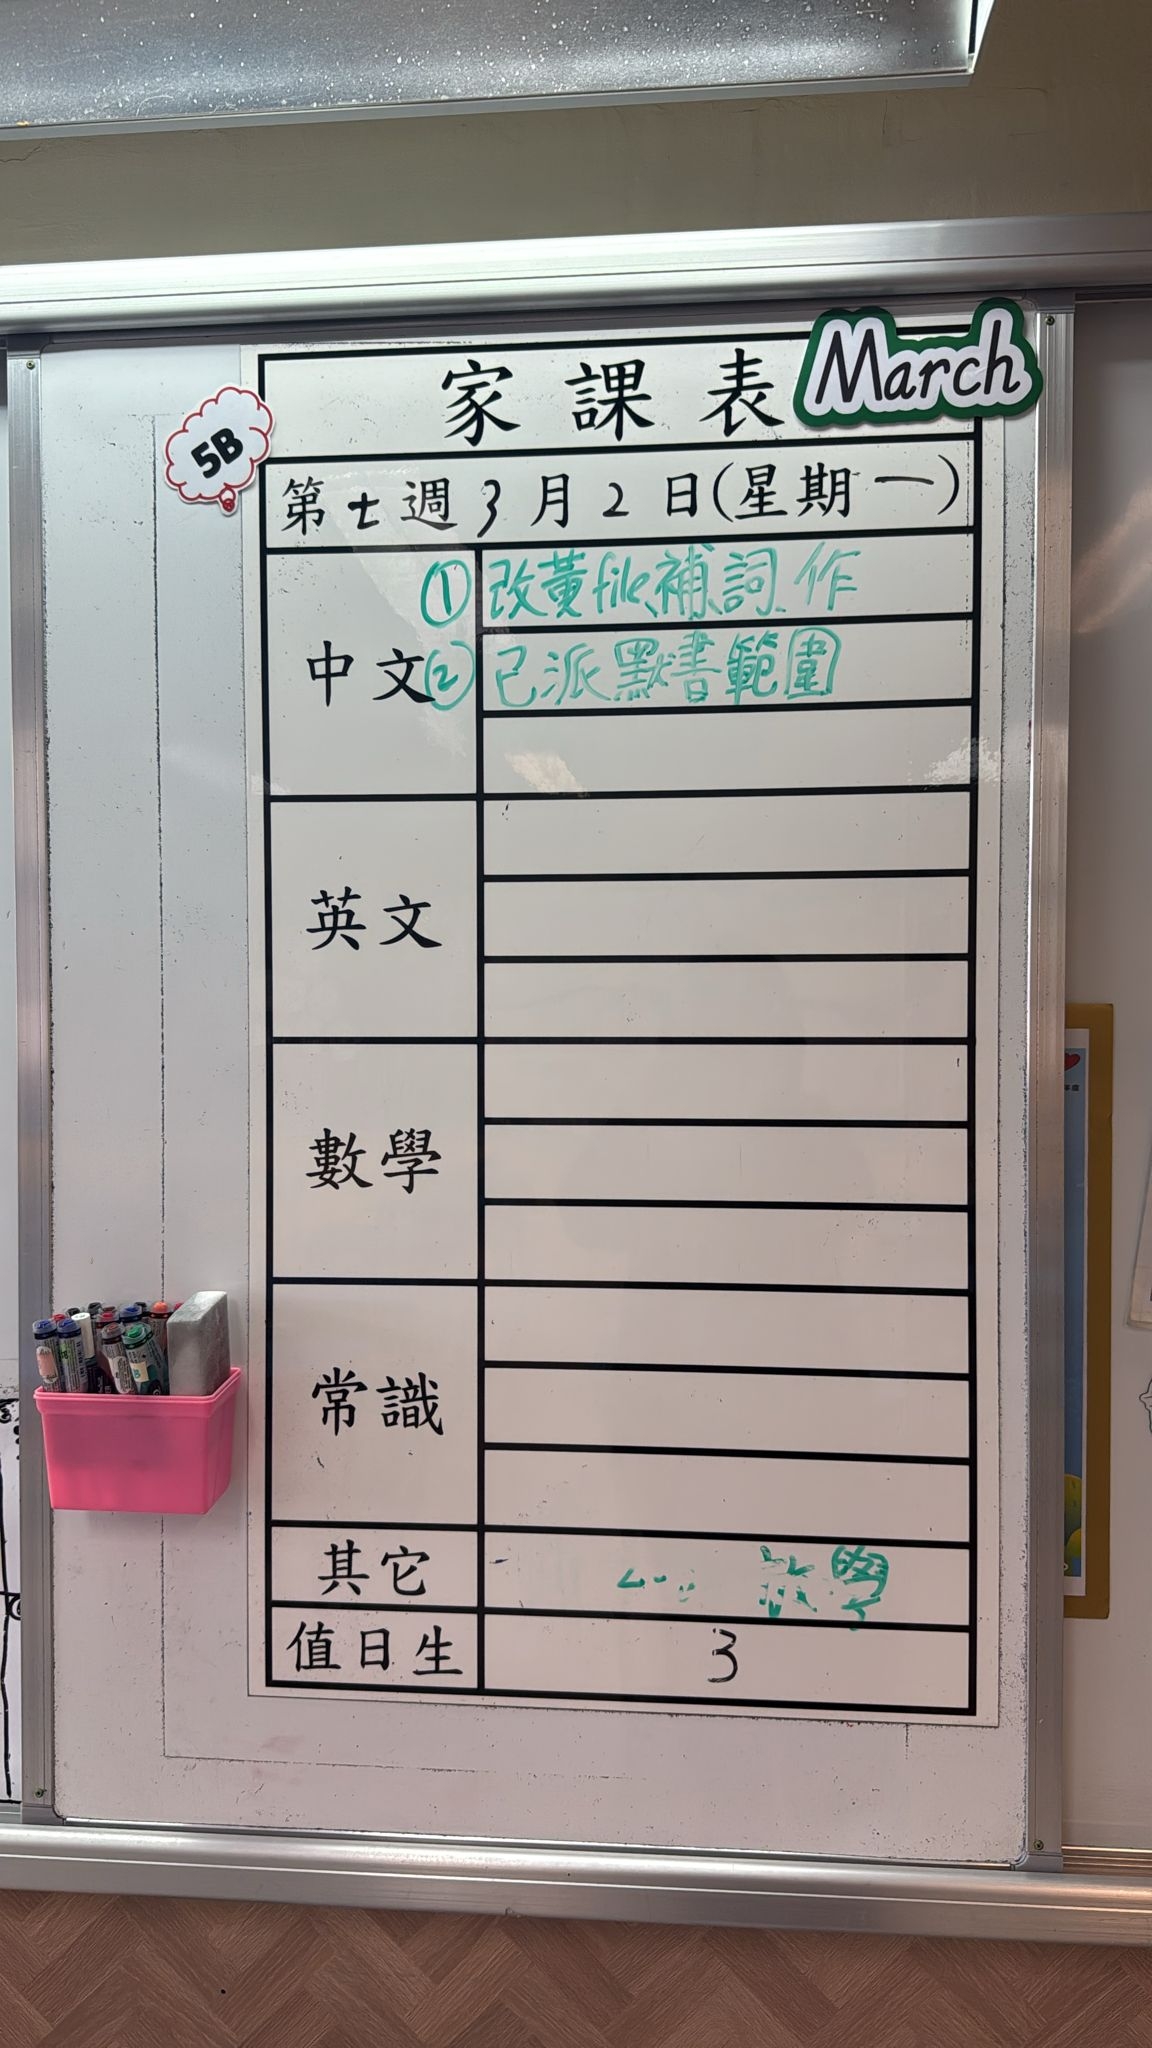 March
家課表
5B
第七週3月2日(星期一)
中文
①改黃file、補、詞、作
②已派默書範圍
英文
數學
常識
其它
值日生 3